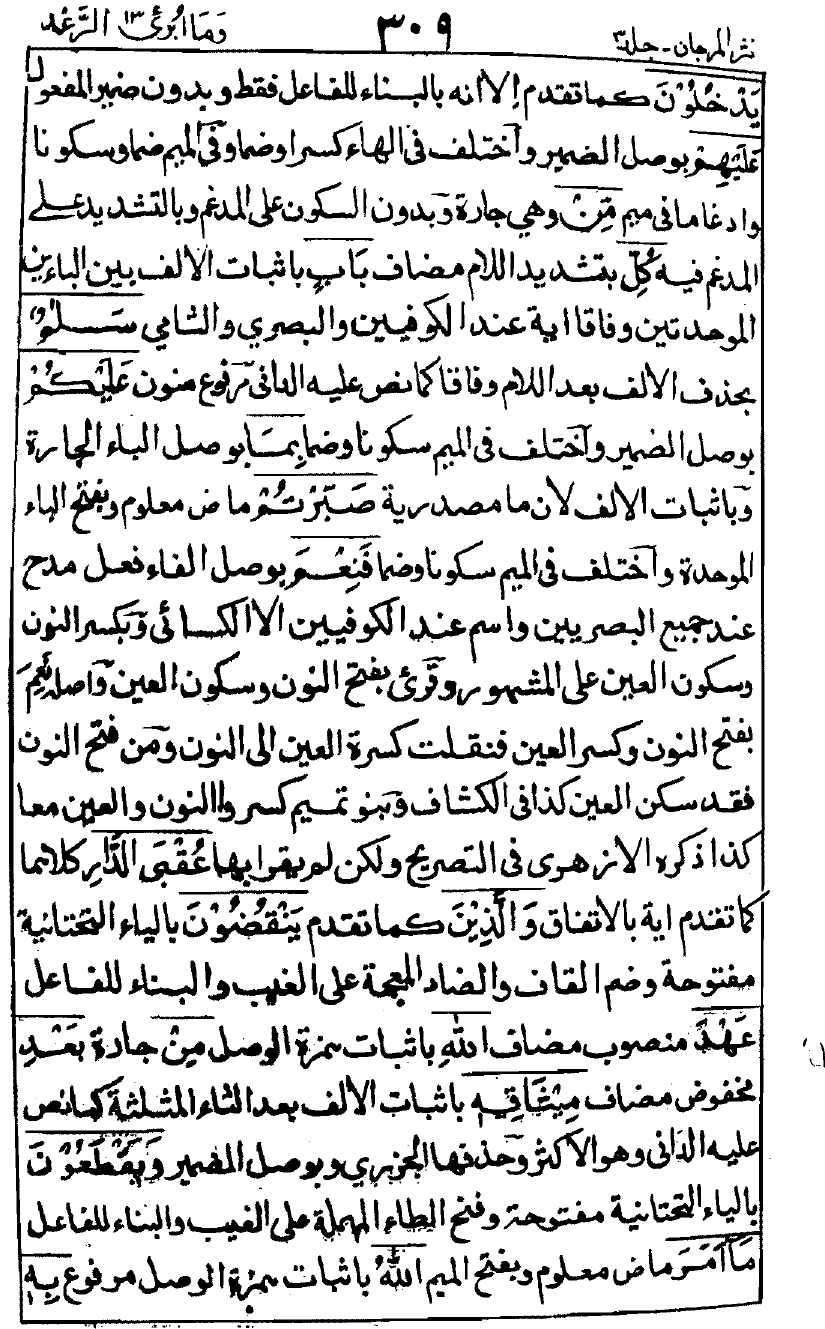 نثر المرجان - جلد ٣ ٣٠٩ وما أبرئ ١٣ الرّعد
يَدْخُلُوْنَ كما تقدم إلا أنه بالبناء للفاعل فقط وبدون ضمير المفعول
عَلَيْهِمْ بوصل الضمير وآختلف في الهاء كسرا وضما وفي الميم ضما وسكونا
وادغاما في ميم مِّنْ وهي جارة وَبدون السكون على المدغم وبالتشديد على
المدغم فيه كُلِّ بتشديد اللام مضاف بَابٍ باثبات الالف بين البائين
الموحدتين وفاقا اية عند الكوفيين والبصري والشامي سَلٰمٌ
بحذف الالف بعد اللام وفاقا كما نص عليه الداني مرفوع منون عَلَيْكُمْ
بوصل الضمير وآختلف في الميم سكونا وضما بِمَا بوصل الباء الجارة
وَباثبات الالف لان ما مصدرية صَبَرْتُمْ ماض معلوم وبفتح الباء
الموحدة وآختلف في الميم سكونا وضما فَنِعْمَ بوصل الفاء فعل مدح
عند جميع البصريين واسم عند الكوفيين الا الكسائي وَبكسر النون
وسكون العين على المشهور وقُرئ بفتح النون وسكون العين وآصله نَعِمَ
بفتح النون وكسر العين فنقلت كسرة العين الى النون وَمن فتح النون
فقد سكن العين كذا في الكشاف وَبنو تميم كسروا النون والعين معا
كذا ذكره الازهري في التصريح ولكن لم يقرا بهما عُقْبَى الدَّارِ كلاهما
كما تقدم اية بالاتفاق وَالَّذِيْنَ كما تقدم يَنْقُضُوْنَ بالياء التحتانية
مفتوحة وضم القاف والضاد المعجمة على الغيب والبناء للفاعل
عَهْدَ منصوب مضاف اللهِ باثبات همزة الوصل مِنْ جارة بَعْدِ
مخفوض مضاف مِيْثَاقِهٖ باثبات الالف بعد الثاء المثلثة كما نص
عليه الداني وهو الاكثر وحذفها الجزري وبوصل الضمير وَيَقْطَعُوْنَ
بالياء التحتانية مفتوحة وفتح الطاء المهملة على الغيب والبناء للفاعل
مَا اَمَرَ ماض معلوم وبفتح الميم اللهُ باثبات همزة الوصل مرفوع بِهٖ